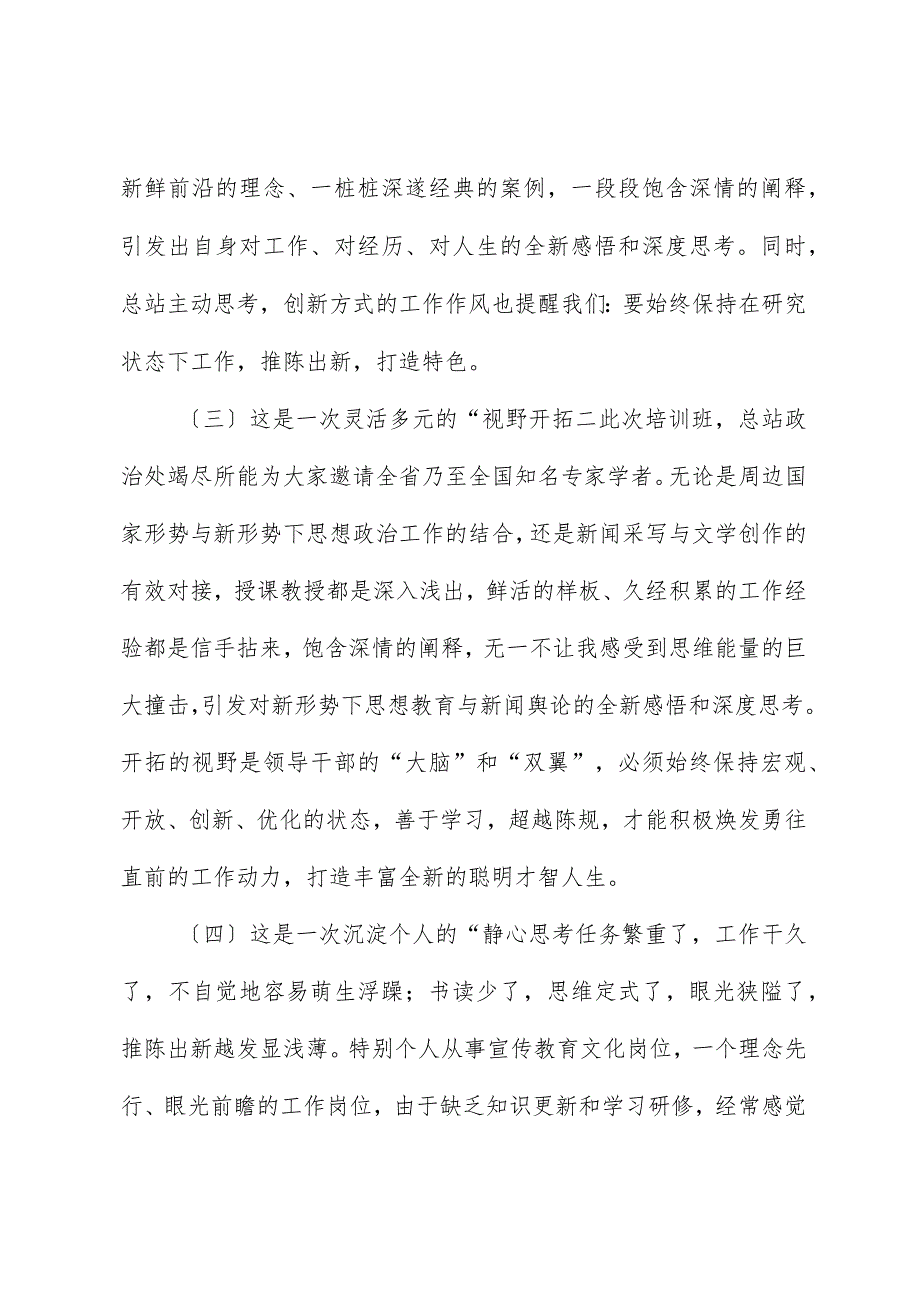 新鲜前沿的理念、一桩桩深遂经典的案例，一段段饱含深情的阐释，
引发出自身对工作、对经历、对人生的全新感悟和深度思考。同时，
总站主动思考，创新方式的工作作风也提醒我们：要始终保持在研究
状态下工作，推陈出新，打造特色。
〔三〕这是一次灵活多元的“视野开拓二此次培训班，总站政
治处竭尽所能为大家邀请全省乃至全国知名专家学者。无论是周边国
家形势与新形势下思想政治工作的结合，还是新闻采写与文学创作的
有效对接，授课教授都是深入浅出，鲜活的样板、久经积累的工作经
验都是信手拈来，饱含深情的阐释，无一不让我感受到思维能量的巨
大撞击，引发对新形势下思想教育与新闻舆论的全新感悟和深度思考。
开拓的视野是领导干部的“大脑”和“双翼”，必须始终保持宏观、
开放、创新、优化的状态，善于学习，超越陈规，才能积极焕发勇往
直前的工作动力，打造丰富全新的聪明才智人生。
〔四〕这是一次沉淀个人的“静心思考任务繁重了，工作干久
了，不自觉地容易萌生浮躁；书读少了，思维定式了，眼光狭隘了，
推陈出新越发显浅薄。特别个人从事宣传教育文化岗位，一个理念先
行、眼光前瞻的工作岗位，由于缺乏知识更新和学习研修，经常感觉